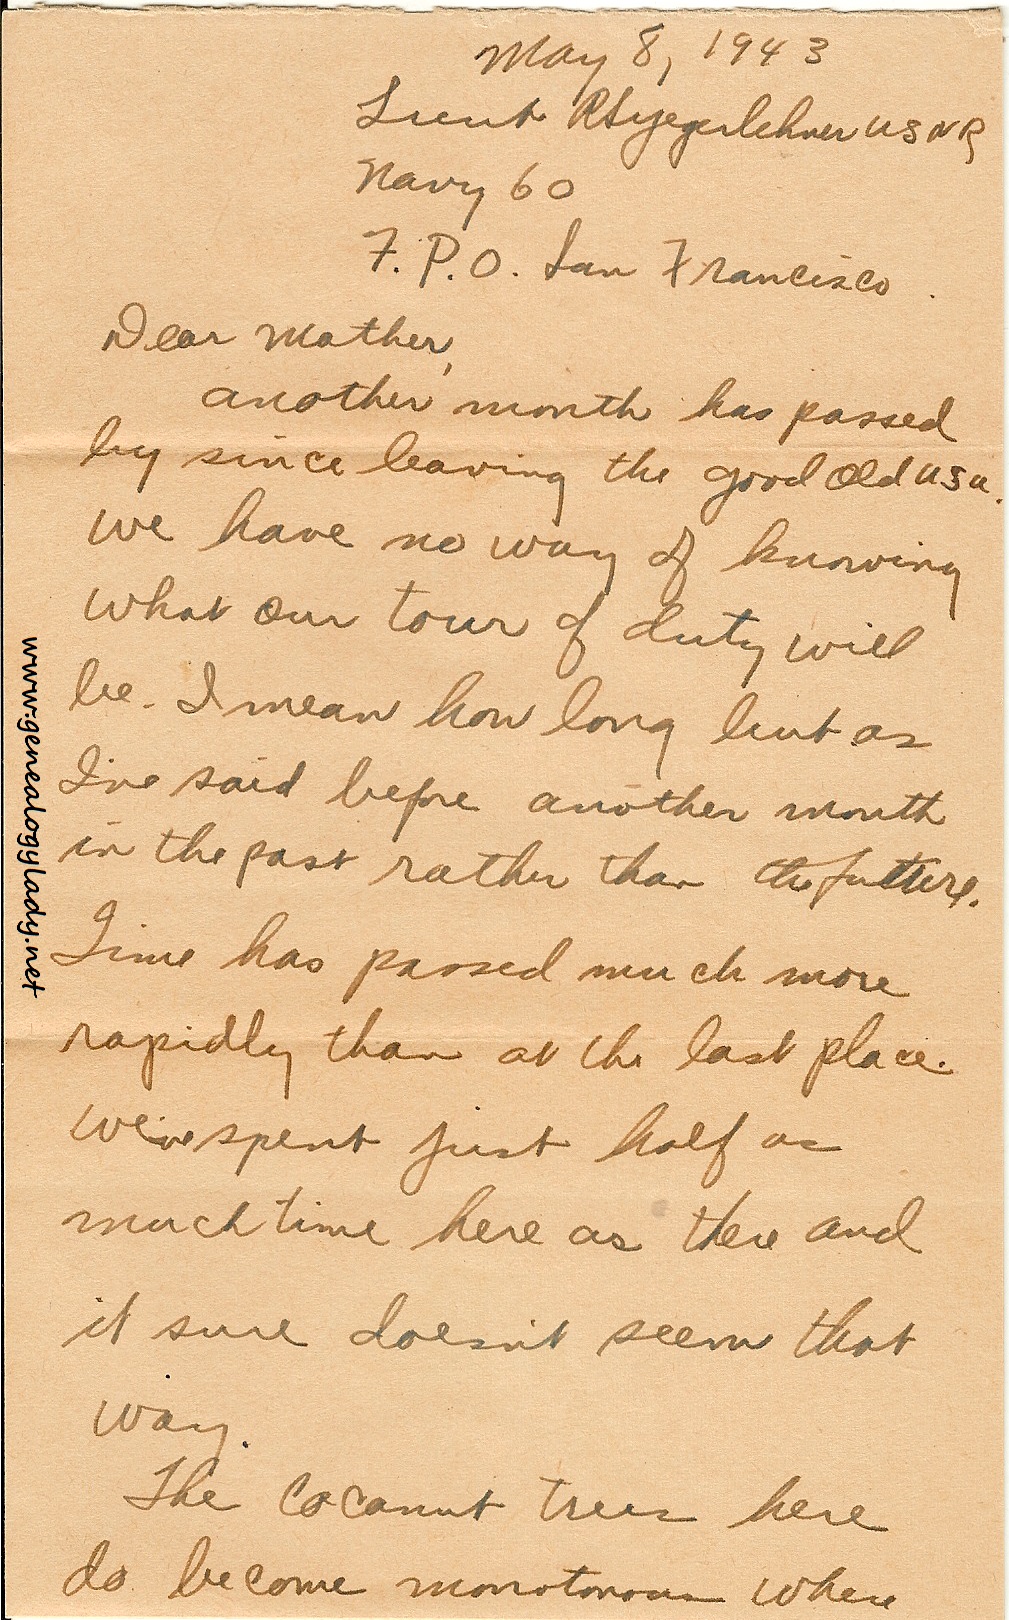 May 8, 1943
Lieut RSYegerlehner USNR
Navy 60
F.P.O. San Francisco.
Dear Mother,
another month has passed
by since leaving the good old USA.
We have no way of knowing
what our tour of duty will
be. I mean how long but as
I've said before another month
in the past rather than the future.
Time has passed much more
rapidly than at the last place.
We've spent just half as
much time here as there and
it sure doesn't seem that
way.
The cocanut trees here
do become monotonous where
www.genealogylady.net